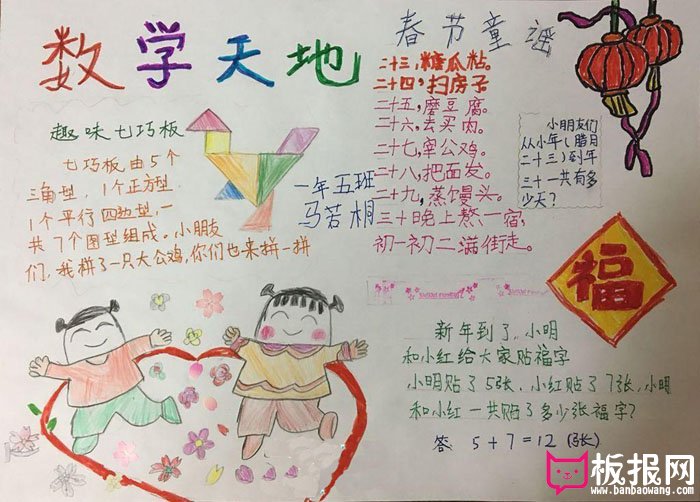 数学天地
趣味七巧板
七巧板由5个
三角型，1个正方型，
1个平行四边型，一
共7个图型组成。小朋友
们，我拼了一只大公鸡，你们也来拼一拼
一年五班
马若桐
春节童谣
二十三，糖瓜粘。
二十四，扫房子
二十五，磨豆腐。
二十六，去买肉。
二十七，宰公鸡。
二十八，把面发。
二十九，蒸馒头。
三十晚上熬一宿，
初一初二满街走。
小朋友们
从小年（腊月
二十三）到年
三十一共有多
少天？
福
新年到了，小明
和小红给大家贴福字
小明贴了5张，小红贴了7张，小明
和小红一共贴了多少张福字？
答 5+7=12（张）
板报网
www.banbaowang.com